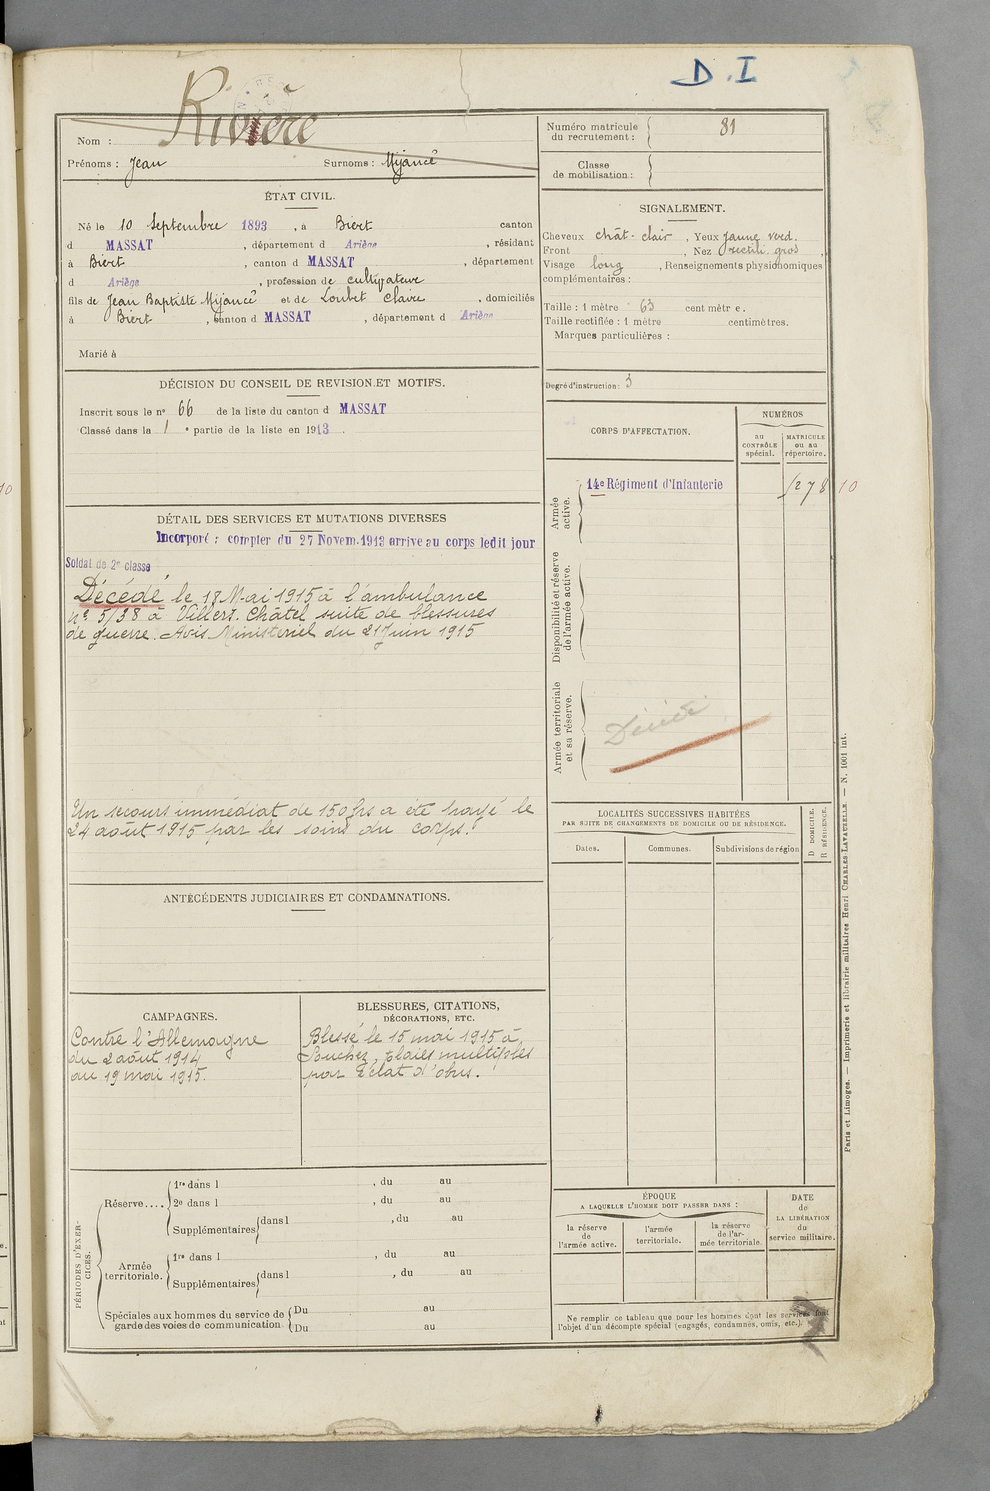 D.I
Rivière
Nom :
Prénoms : Jean Surnoms : Mijancé
Numéro matricule du recrutement : 81
Classe de mobilisation :
ÉTAT CIVIL.
Né le 10 Septembre 1893, à Biert canton
d MASSAT, département d Ariège, résidant
à Biert, canton d MASSAT, département
d Ariège, profession de cultivateur
fils de Jean Baptiste Mijancé et de Loubet Claire, domiciliés
à Biert, canton d MASSAT, département d Ariège
Marié à
SIGNALEMENT.
Cheveux chât-clair, Yeux jaune verd.
Front , Nez rectili. gros,
Visage long, Renseignements physionomiques
complémentaires :
Taille : 1 mètre 63 centimètres.
Taille rectifiée : 1 mètre centimètres.
Marques particulières :
Degré d'instruction : 3
DÉCISION DU CONSEIL DE REVISION ET MOTIFS.
Inscrit sous le nº 66 de la liste du canton d MASSAT
Classé dans la 1 e partie de la liste en 1913.
DÉTAIL DES SERVICES ET MUTATIONS DIVERSES
Incorporé à compter du 27 Novem. 1913 arrive au corps ledit jour
Soldat de 2e classe
Décédé le 18 Mai 1915 à l'ambulance
nº 5/38 à Villers. Châtel suite de blessures
de guerre. Avis Ministériel du 21 Juin 1915
Un secours immédiat de 150frs a été payé le
24 août 1915 par les soins du corps.
CORPS D'AFFECTATION.
NUMÉROS
au CONTRÔLE spécial.
MATRICULE ou au répertoire.
Armée active.
14e Régiment d'Infanterie
Disponibilité et réserve de l'armée active.
Armée territoriale et sa réserve.
Décédé
LOCALITÉS SUCCESSIVES HABITÉES
PAR SUITE DE CHANGEMENTS DE DOMICILE OU DE RÉSIDENCE.
Dates. Communes. Subdivisions de région
D DOMICILE.
R RÉSIDENCE.
ANTÉCÉDENTS JUDICIAIRES ET CONDAMNATIONS.
CAMPAGNES.
Contre l'Allemagne
du 2 août 1914
au 19 mai 1915.
BLESSURES, CITATIONS,
DÉCORATIONS, ETC.
Blessé le 15 mai 1915 à
Souchez, plaies multiples
par Eclat d'obus.
PÉRIODES D'EXERCICES.
Réserve....
1re dans l , du au
2e dans l , du au
Supplémentaires dans l , du au
Armée territoriale.
1re dans l , du au
Supplémentaires dans l , du au
Spéciales aux hommes du service de garde des voies de communication
Du au
Du au
ÉPOQUE
A LAQUELLE L'HOMME DOIT PASSER DANS :
la réserve de l'armée active.
l'armée territoriale.
la réserve de l'armée territoriale.
DATE de LA LIBÉRATION du service militaire.
Ne remplir ce tableau que pour les hommes dont les services font
l'objet d'un décompte spécial (engagés, condamnés, omis, etc.).
Paris et Limoges. — Imprimerie et librairie militaires Henri CHARLES-LAVAUZELLE — N. 1001 int.